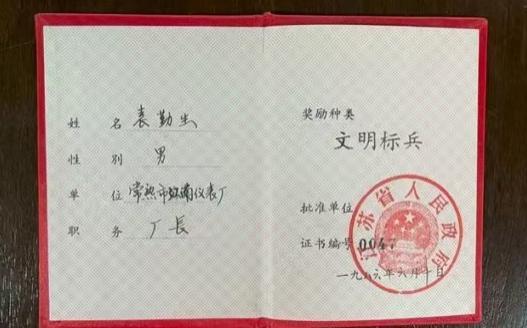 姓名 袁勤生
性别 男
单位 常熟市 仪表厂
职务 厂长
奖励种类
文明标兵
批准单位
江苏省人民政府
证书编号 004
一九八六年六月十日